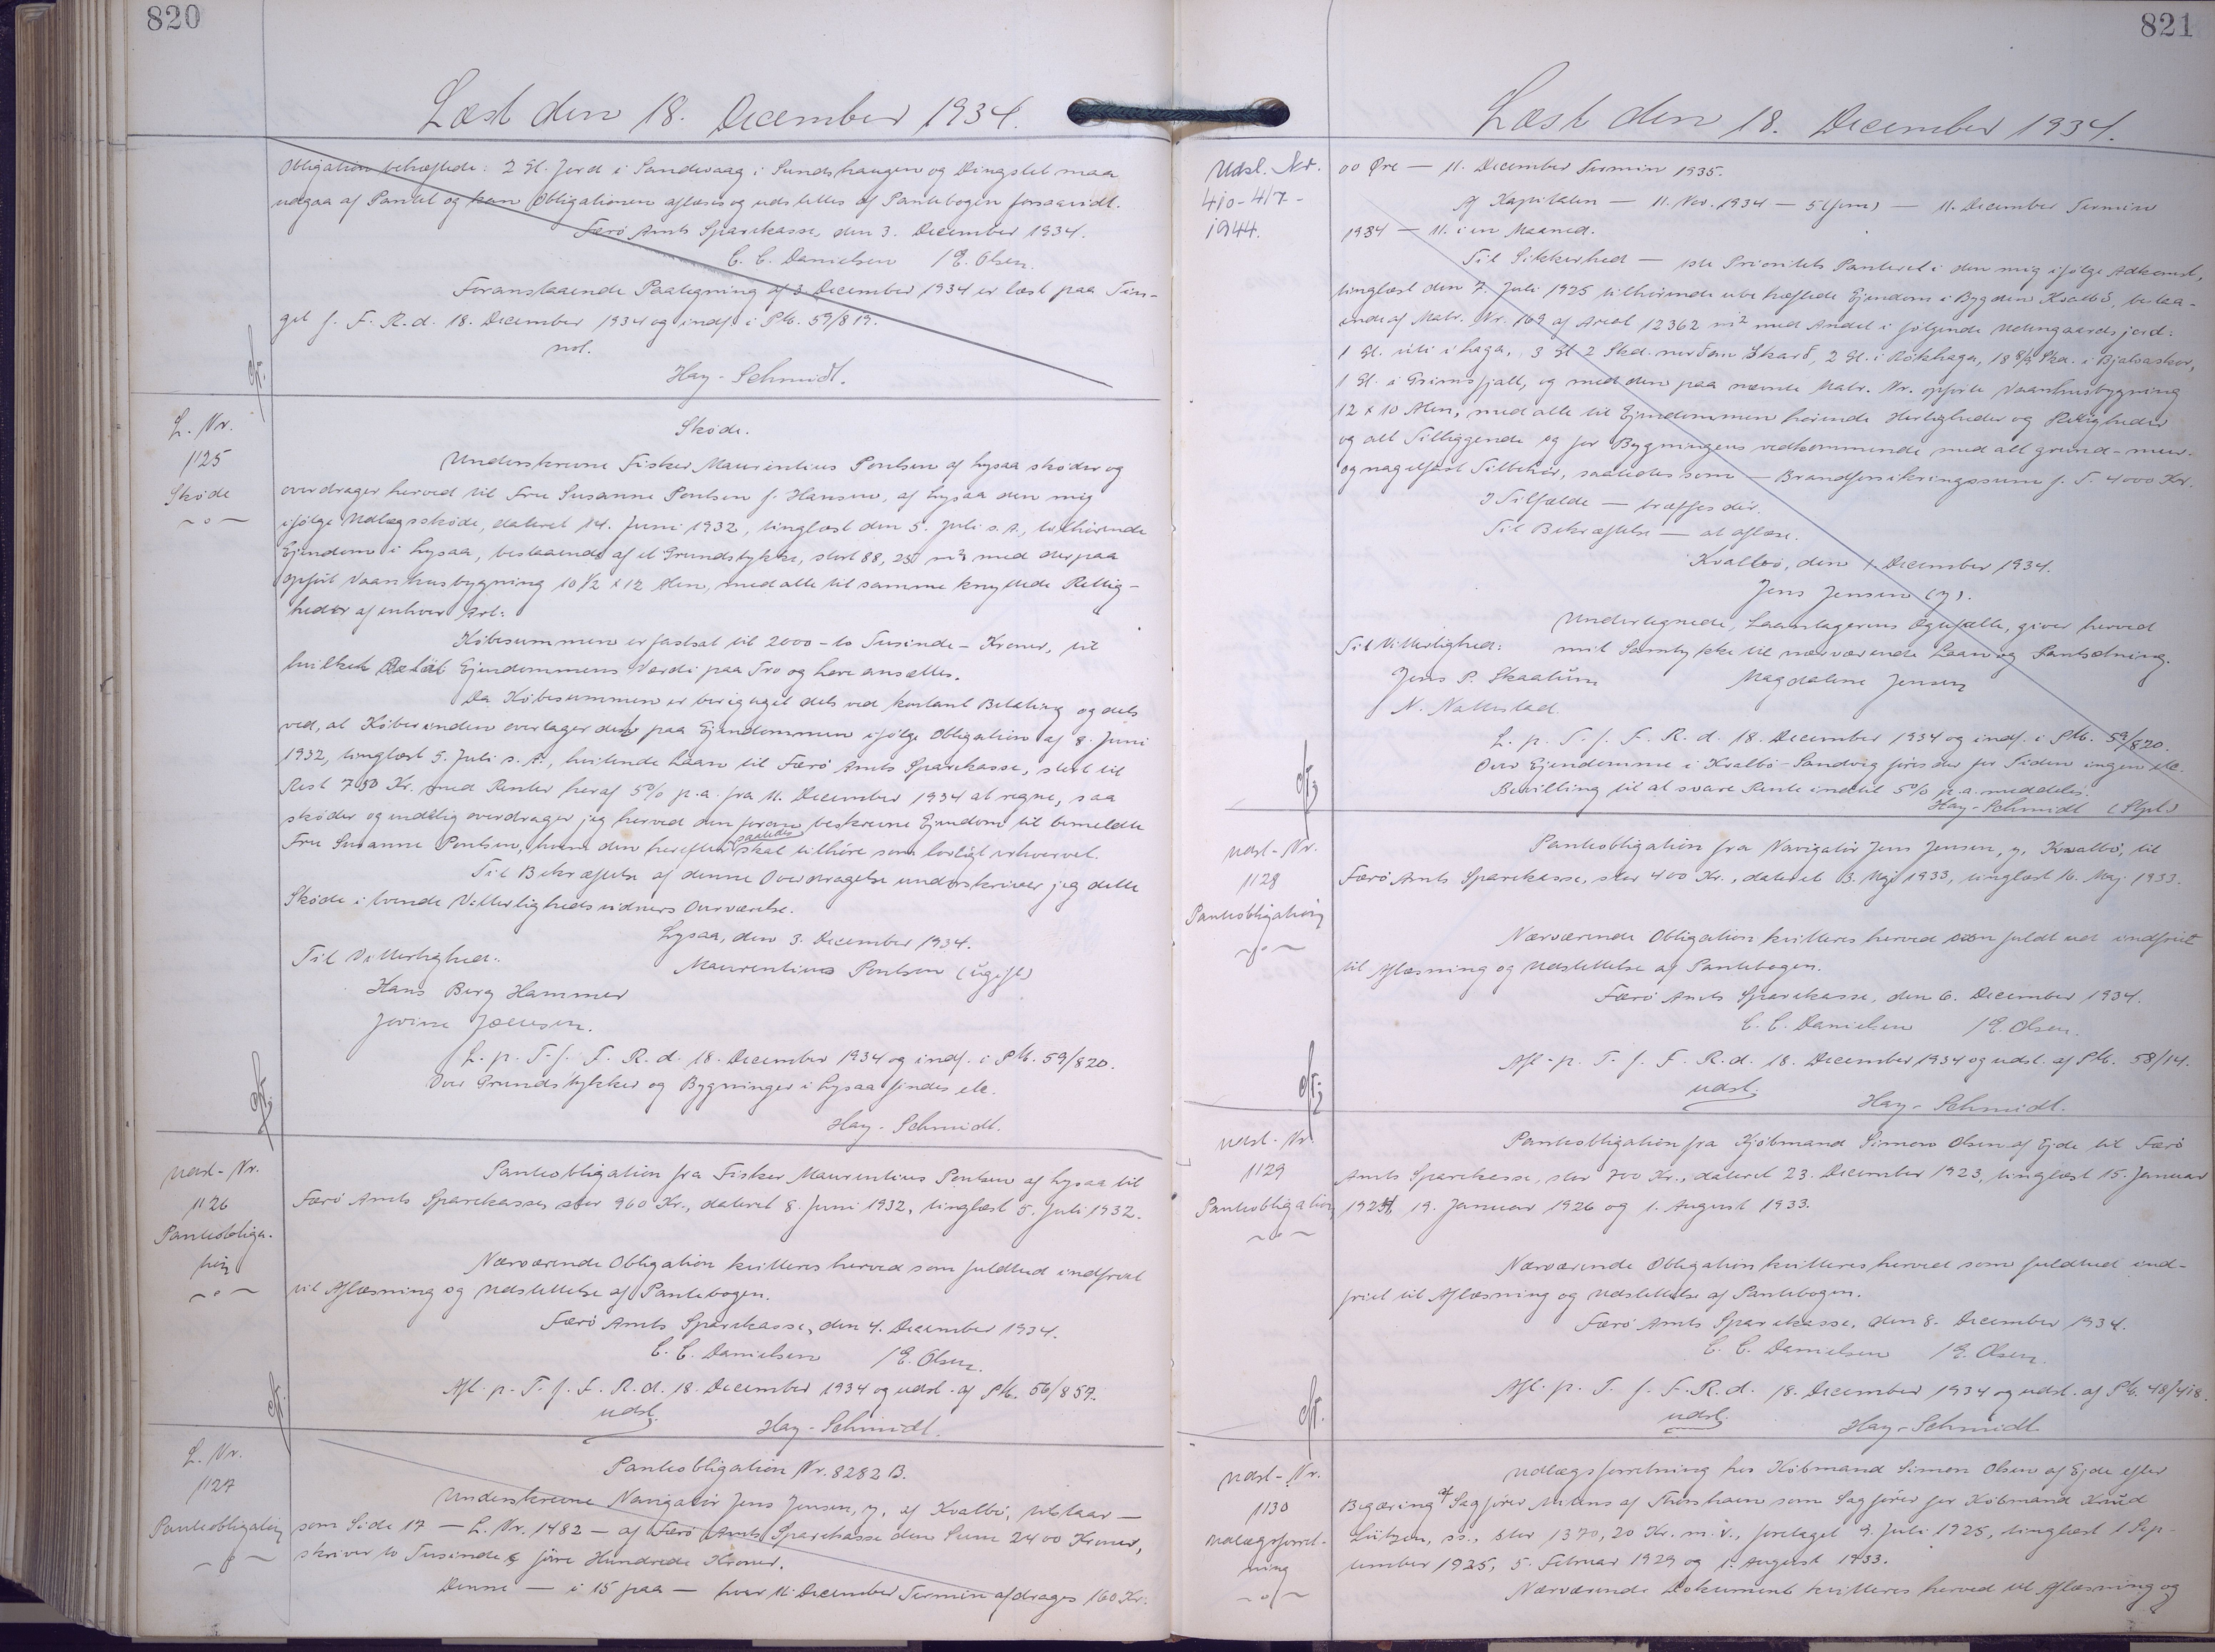 820
Læst den 18. December 1934.
Obligation behæftede: 2 Gl. Jord i Sandevaag i Sundshaugen og Dingslet maa
udgaa af Pantet og kan Obligationen aflæses og udslettes af Pantebogen forsaavidt.
Færø Amts Sparekasse, den 3. December 1934.
C. C. Danielsen / E. Olsen.
Foranstaaende Paategning af 3 December 1934 er læst paa Tin-
get f. F. R. d. 18. December 1934 og indf. i Ptb. 59/819.
not.
Hay-Schmidt.
L. Nr.
1125
Skøde
Skøde.
Underskrevne Fisker Maurentius Poulsen af Lysaa skøder og
overdrager herved til Fru Susanne Poulsen f. Hansen, af Lysaa den mig
ifølge Udlægsskøde, dateret 14. Juni 1932, tinglæst den 5. Juli s. A., tilhørende
Ejendom i Lysaa, bestaaende af et Grundstykke, stort 88,250 m² med derpaa
opført Vaanhusbygning 10 1/2 x 12 Alen, med alle til samme knyttede Rettig-
heder af enhver Art.
Købesummen er fastsat til 2000 - to Tusinde - Kroner, til
hvilket Beløb Ejendommens Værdi paa Tro og Love ansættes.
Da Købesummen er berigtiget dels ved kontant Betaling og dels
ved, at Køberinden overtager det paa Ejendommen ifølge Obligation af 8. Juni
1932, tinglæst 5. Juli s. A., hvilende Laan til Færø Amts Sparekasse, stort til
Rest 750 Kr. med Renter heraf 5% p.a. fra 11. December 1934 at regne, saa
skøder og endelig overdrager jeg herved den foran beskrevne Ejendom til bemeldte
Fru Susanne Poulsen, hvem den herefter saaledes skal tilhøre som lovligt erhvervet.
Til Bekræftelse af denne Overdragelse underskriver jeg dette
Skøde i tvende Vitterlighedsvidners Overværelse.
Lysaa, den 3. December 1934.
Til Vitterlighed:
Maurentius Poulsen (ugift)
Hans Berg Hammer
Jovine Joensen.
L. p. T. f. F. R. d. 18. December 1934 og indf. i Ptb. 59/820.
Over Grundstykker og Bygninger i Lysaa findes etc.
Hay-Schmidt.
Udsl-Nr.
1126
Panteobliga-
tion
Panteobligation fra Fisker Maurentius Poulsen af Lysaa til
Færø Amts Sparekasse, stor 960 Kr., dateret 8. Juni 1932, tinglæst 5. Juli 1932.
Nærværende Obligation kvitteres herved som fuldtud indfriet
til Aflæsning og Udslettelse af Pantebogen.
Færø Amts Sparekasse, den 4. December 1934.
C. C. Danielsen / E. Olsen.
Afl. p. T. f. F. R. d. 18. December 1934 og udsl. af Ptb. 56/857.
udsl.
Hay-Schmidt.
L. Nr.
1127
Panteobligation
Panteobligation Nr. 8282 B.
Underskrevne Navigatør Jens Jensen, y. af Kvalbø, tilstaar —
som Side 17 — L. Nr. 1482 — af Færø Amts Sparekasse den Sum 2400 Kroner,
skriver to Tusinde & fire Hundrede Kroner.
Denne — i 15 paa — hver 11. December Termin afdrages 160 Kr.
821
Læst den 18. December 1934.
Udsl. Nr.
410-4/7-
1944.
00 Øre — 11. December Termin 1935.
Af Kapitalen — 11. Nov. 1934 — 5 (fem) — 11. December Termin
1934 — 11. i en Maaned.
Til Sikkerhed — 1ste Prioritets Panteret i den mig ifølge Adkomst,
tinglæst den 7. Juli 1925 tilhørende ubehæftede Ejendom i Bygden Kvalbø, bestaa-
ende af Matr. Nr. 169 af Areal 12362 m² med Andel i følgende Uehngaards jord:
1 Gl. úti i haga, 3 Gl 2 Skd. norðan Skarð, 2 Gl. i Rókhaga, 18 8/9 Skd. i Bjalsaskor,
1 Gl. i Grimsfjall, og med den paa nævnte Matr. Nr. opførte Vaanhusbygning
12 x 10 Alen, med alle til Ejendommen hørende Herligheder og Rettigheder
og alt Tilliggende og for Bygningens vedkommende med alt grund- mur-
og nagelfast Tilbehør, saaledes som — Brandforsikringssum f. T. 4000 Kr.
I Tilfælde — træffes dér.
Til Bekræftelse — at aflæse.
Kvalbø, den 1 December 1934.
Jens Jensen (y).
Undertegnede, Laantagerens Ægtefælle, giver herved
Til Vitterlighed: mit Samtykke til nærværende Laan og Pantsætning.
Jens P. Skaalum
Magdalene Jensen
N. Nattestad.
L. p. T. f. F. R. d. 18. December 1934 og indf. i Ptb. 59/820.
Over Ejendomme i Kvalbø-Sandvig føres der før Siden ingen etc.
Bevilling til at svare Rente indtil 5% p.a. meddeles.
Hay-Schmidt
Udsl-Nr.
1128
Panteobligation
Panteobligation fra Navigatør Jens Jensen, y, Kvalbø, til
Færø Amts Sparekasse, stor 400 Kr., dateret 13. Maj 1933, tinglæst 16. Maj 1933.
Nærværende Obligation kvitteres herved som fuldt ud indfriet
til Aflæsning og Udslettelse af Pantebogen.
Færø Amts Sparekasse, den 6. December 1934.
C. C. Danielsen / E. Olsen.
Afl. p. T. f. F. R. d. 18. December 1934 og udsl. af Ptb. 58/14.
udsl.
Hay-Schmidt.
Udsl-Nr.
1129
Panteobligation
Panteobligation fra Kjøbmand Simon Olsen af Ejde til Færø
Amts Sparekasse, stor 700 Kr., dateret 23. December 1923, tinglæst 15. Januar
1924, 19. Januar 1926 og 1. August 1933.
Nærværende Obligation kvitteres herved som fuldtud ind-
friet til Aflæsning og Udslettelse af Pantebogen.
Færø Amts Sparekasse, den 8. December 1934.
C. C. Danielsen / E. Olsen.
Afl. p. T. f. F. R. d. 18. December 1934 og udsl. af Ptb. 48/418.
udsl.
Hay-Schmidt
Udsl-Nr.
1130
Udlægsforret-
ning
Udlægsforretning hos Købmand Simon Olsen af Ejde efter
Begæring af Sagfører Mitens af Thorshavn som Sagfører for Købmand Knud
Lützen, ss., stor 1370,20 Kr. m.v., foretaget 9. Juli 1925, tinglæst 1 Sep-
tember 1925, 5. Februar 1929 og 1. August 1933.
Nærværende Dokument kvitteres herved til Aflæsning og